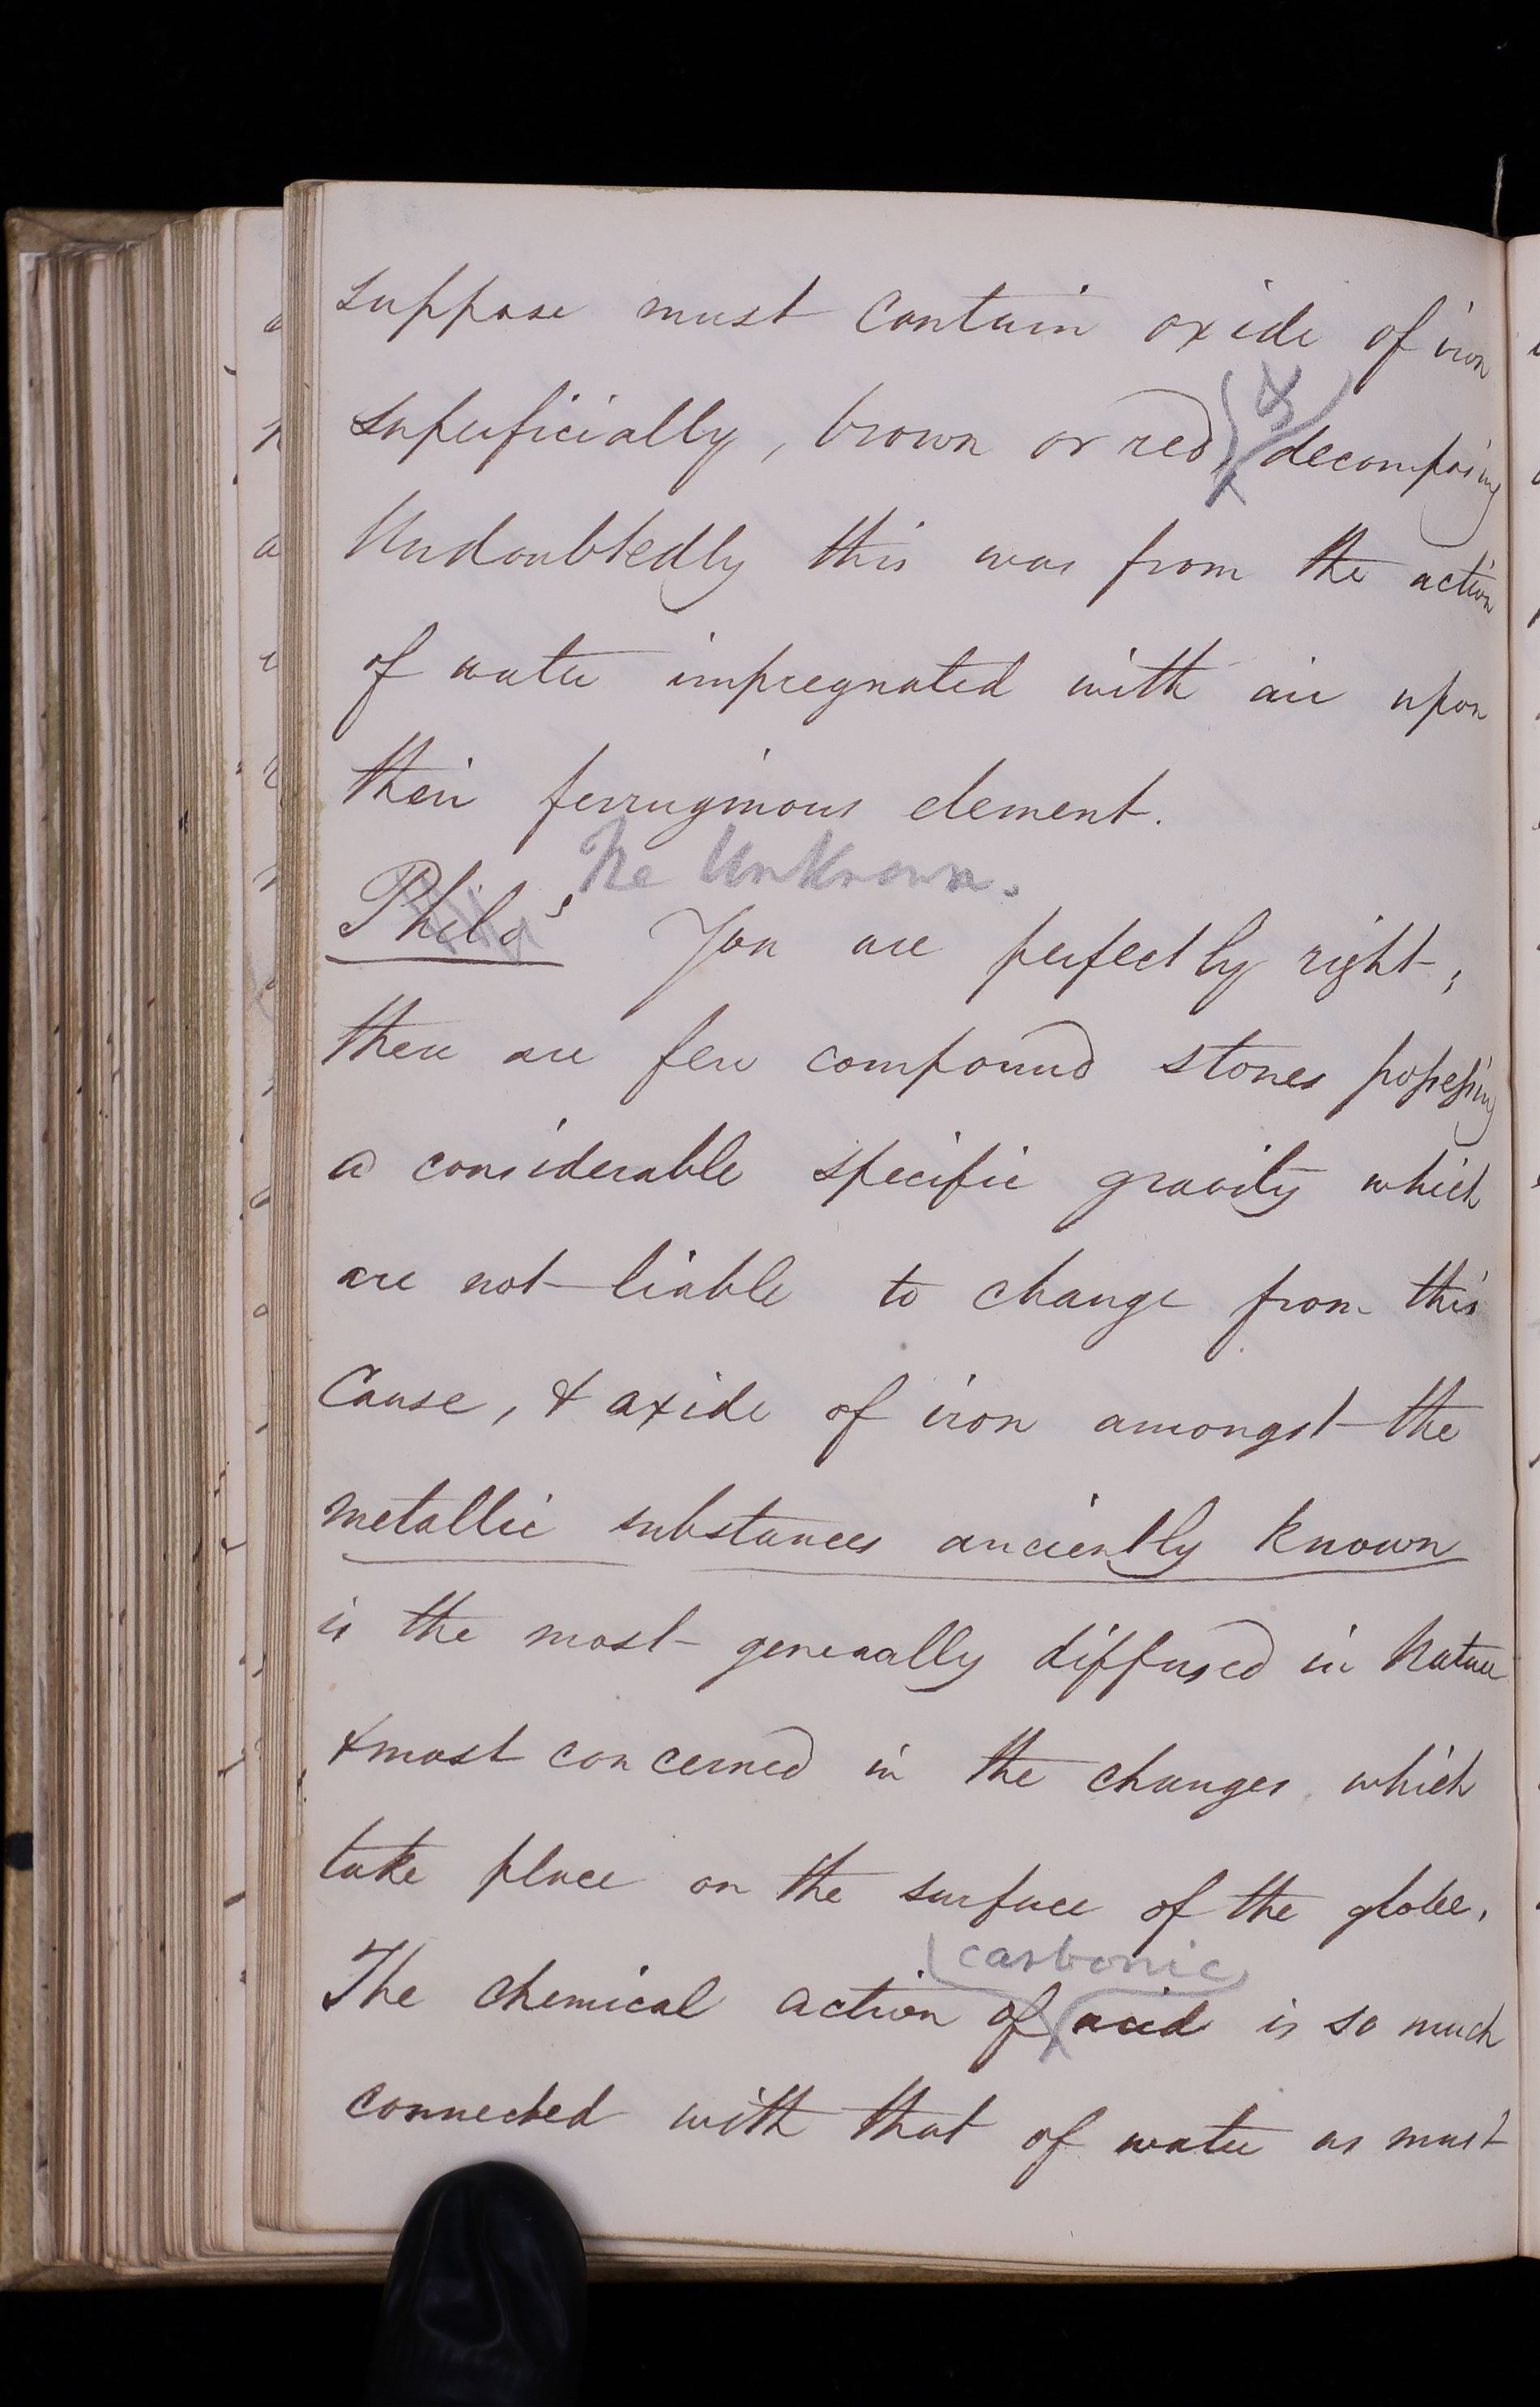 suppose must contain oxide of iron
&
superficially, brown or red, decomposing
Undoubtedly this was from the action
of water impregnated with air upon
their ferruginous element.
The Unknown.
Philo^s You are perfectly right;
there are few compound stones possessing
a considerable specific gravity which
are not liable to change from this
Cause, & oxide of iron amongst the
metallic substances anciently known
is the most generally diffused in Nature
& most concerned in the changes which
take place on the surface of the globe.
carbonic
The chemical action of acid is so much
connected with that of water as must